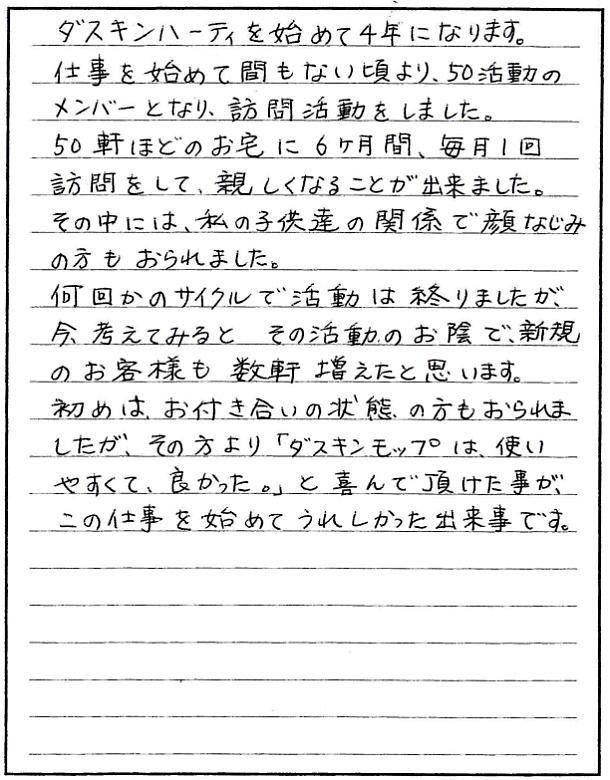 ダスキンハーティを始めて4年になります。
仕事を始めて間もない頃より、50活動の
メンバーとなり、訪問活動をしました。
50軒ほどのお宅に6ヶ月間、毎月1回
訪問をして、親しくなることが出来ました。
その中には、私の子供達の関係で顔なじみ
の方も おられました。
何回かのサイクルで活動は終りましたが、
今、考えてみると その活動のお陰で、新規
のお客様も 数軒 増えたと思います。
初めは、お付き合いの状態、の方もおられま
したが、その方より「ダスキンモップは、使い
やすくて、良かった。」と喜んで頂けた事が、
この仕事を始めてうれしかった出来事です。